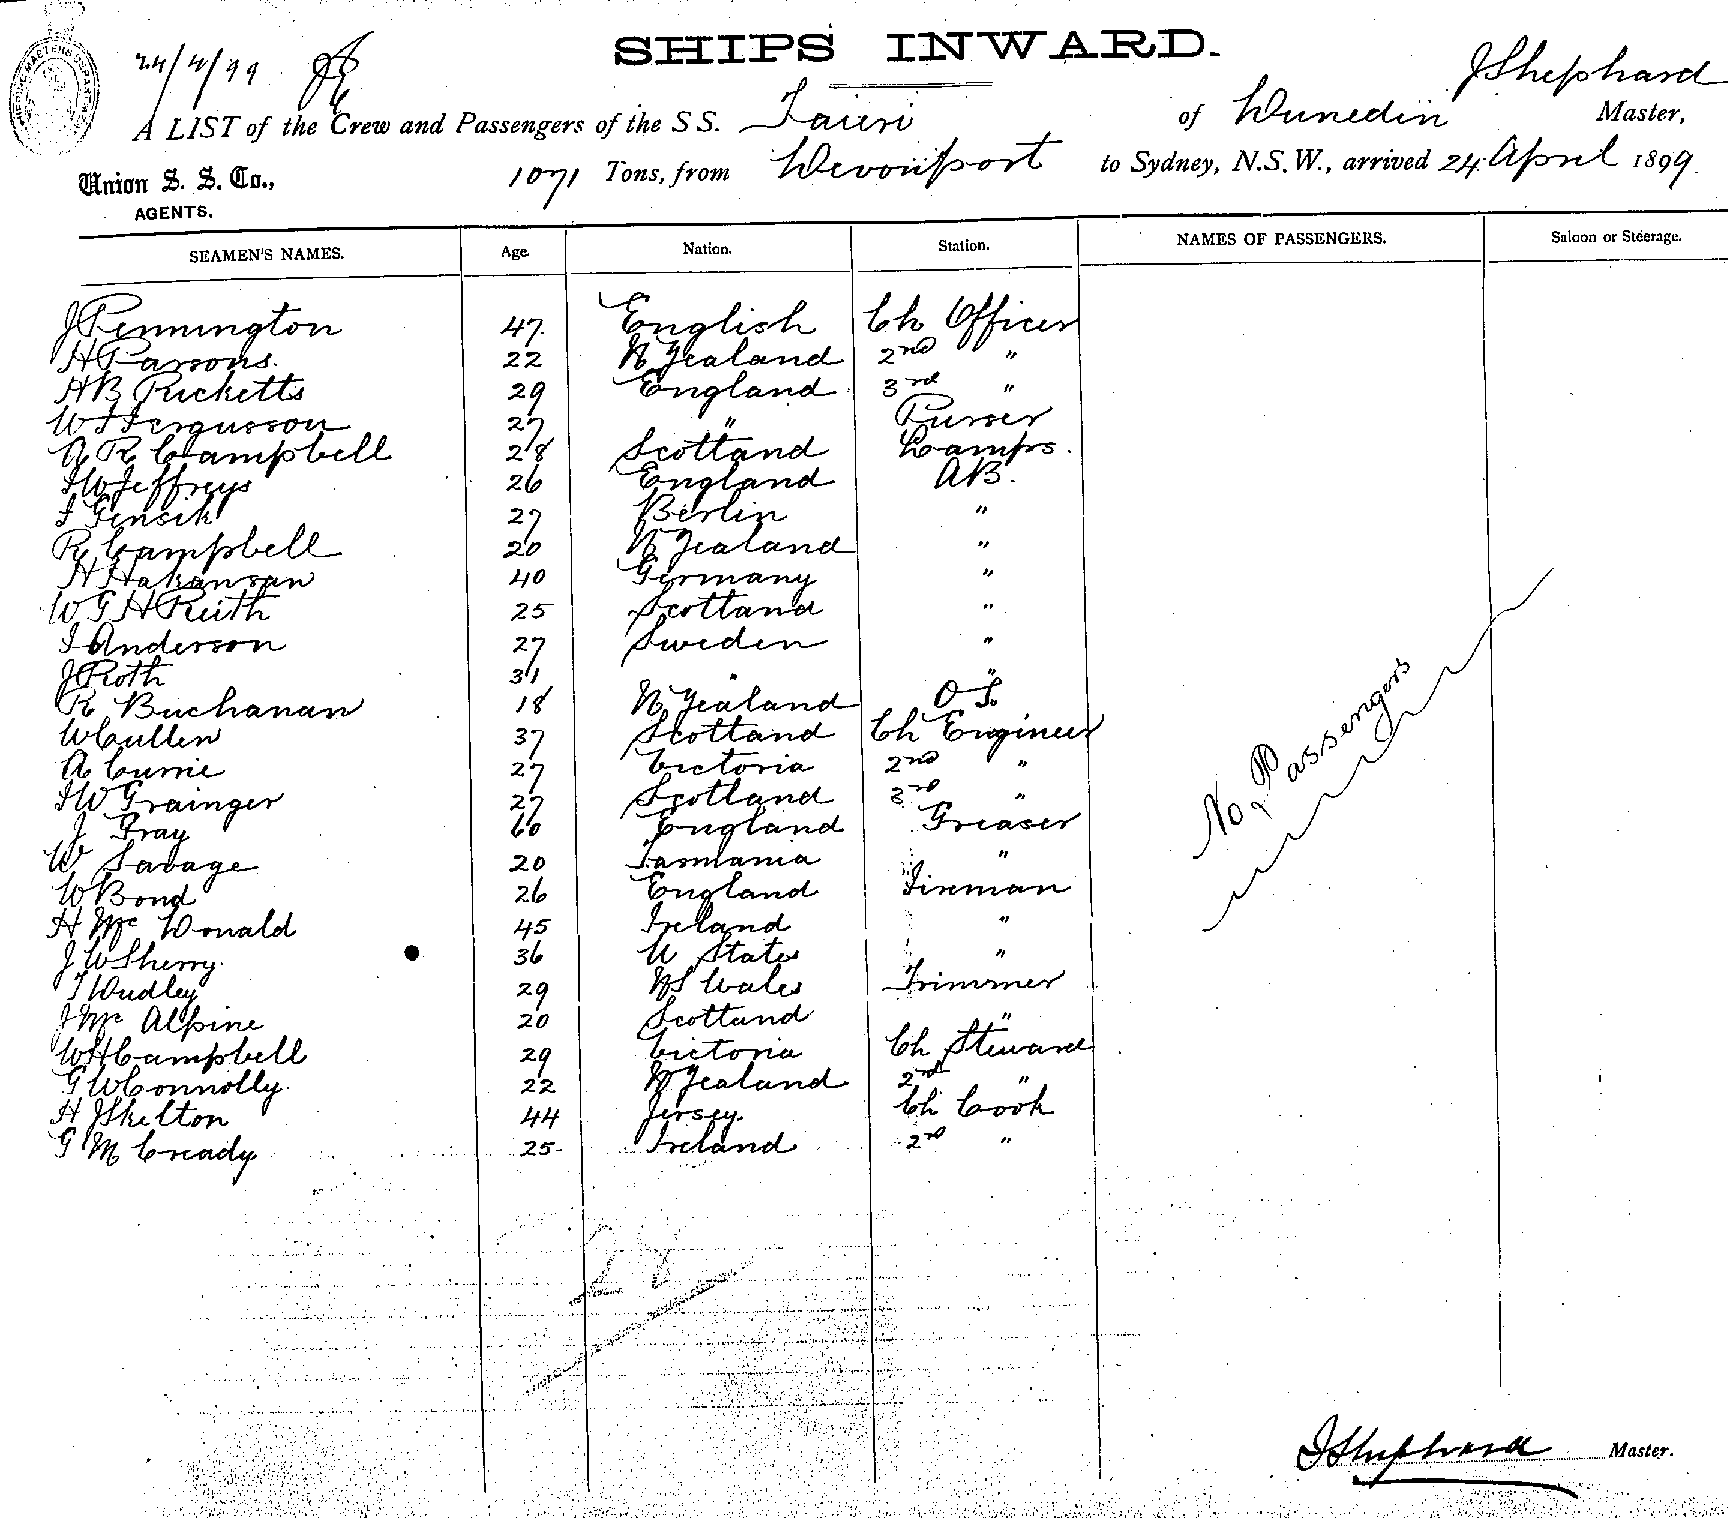 24/4/99
SHIPS INWARD.
J Shephard
A LIST of the Crew and Passengers of the SS. Taieri of Dunedin Master,
Union S. S. Co., 1071 Tons, from Devonport to Sydney, N.S.W., arrived 24 April 1899
AGENTS.
SEAMEN'S NAMES. Age Nation. Station. NAMES OF PASSENGERS. Saloon or Steerage.
J Pennington 47 English Ch Officer
H Parsons. 22 N Zealand 2nd "
H B Ricketts 29 England 3rd "
W J Fergusson 27 " Purser
A R Campbell 28 Scotland Lamps.
J W Jeffreys 26 England AB.
J Gensik 27 Berlin "
R Campbell 20 N Zealand "
H Hakansan 40 Germany "
W G H Reith 25 Scotland "
J Anderson 27 Sweden "
J Roth 31 " "
R Buchanan 18 N Zealand O S.
W Cullen 37 Scotland Ch Engineer
A Currie 27 Victoria 2nd "
J W Grainger 27 Scotland 3rd "
J Gray 60 England Greaser
W Savage 20 Tasmania "
W Bond 26 England Fireman
H Mc Donald 45 Ireland "
J W Sherry. 36 U States "
T Dudley 29 N S Wales Trimmer
J Mc Alpine 20 Scotland "
W H Campbell 29 Victoria Ch Steward
G W Connolly. 22 N Zealand 2nd "
H J Skelton 44 Jersey. Ch Cook
G M Cready 25 Ireland 2nd "
No Passengers
J Shephard Master.